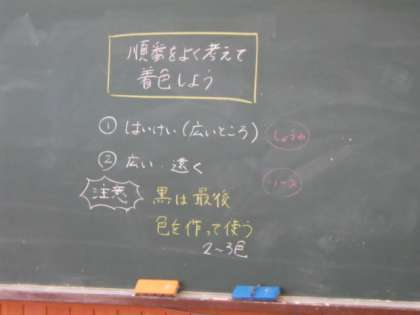 順番をよく考えて
着色しよう
① はいけい(広いところ)
しょうゆ
② 広い・遠く
ソース
注意
黒は最後
色を作って使う
2〜3色